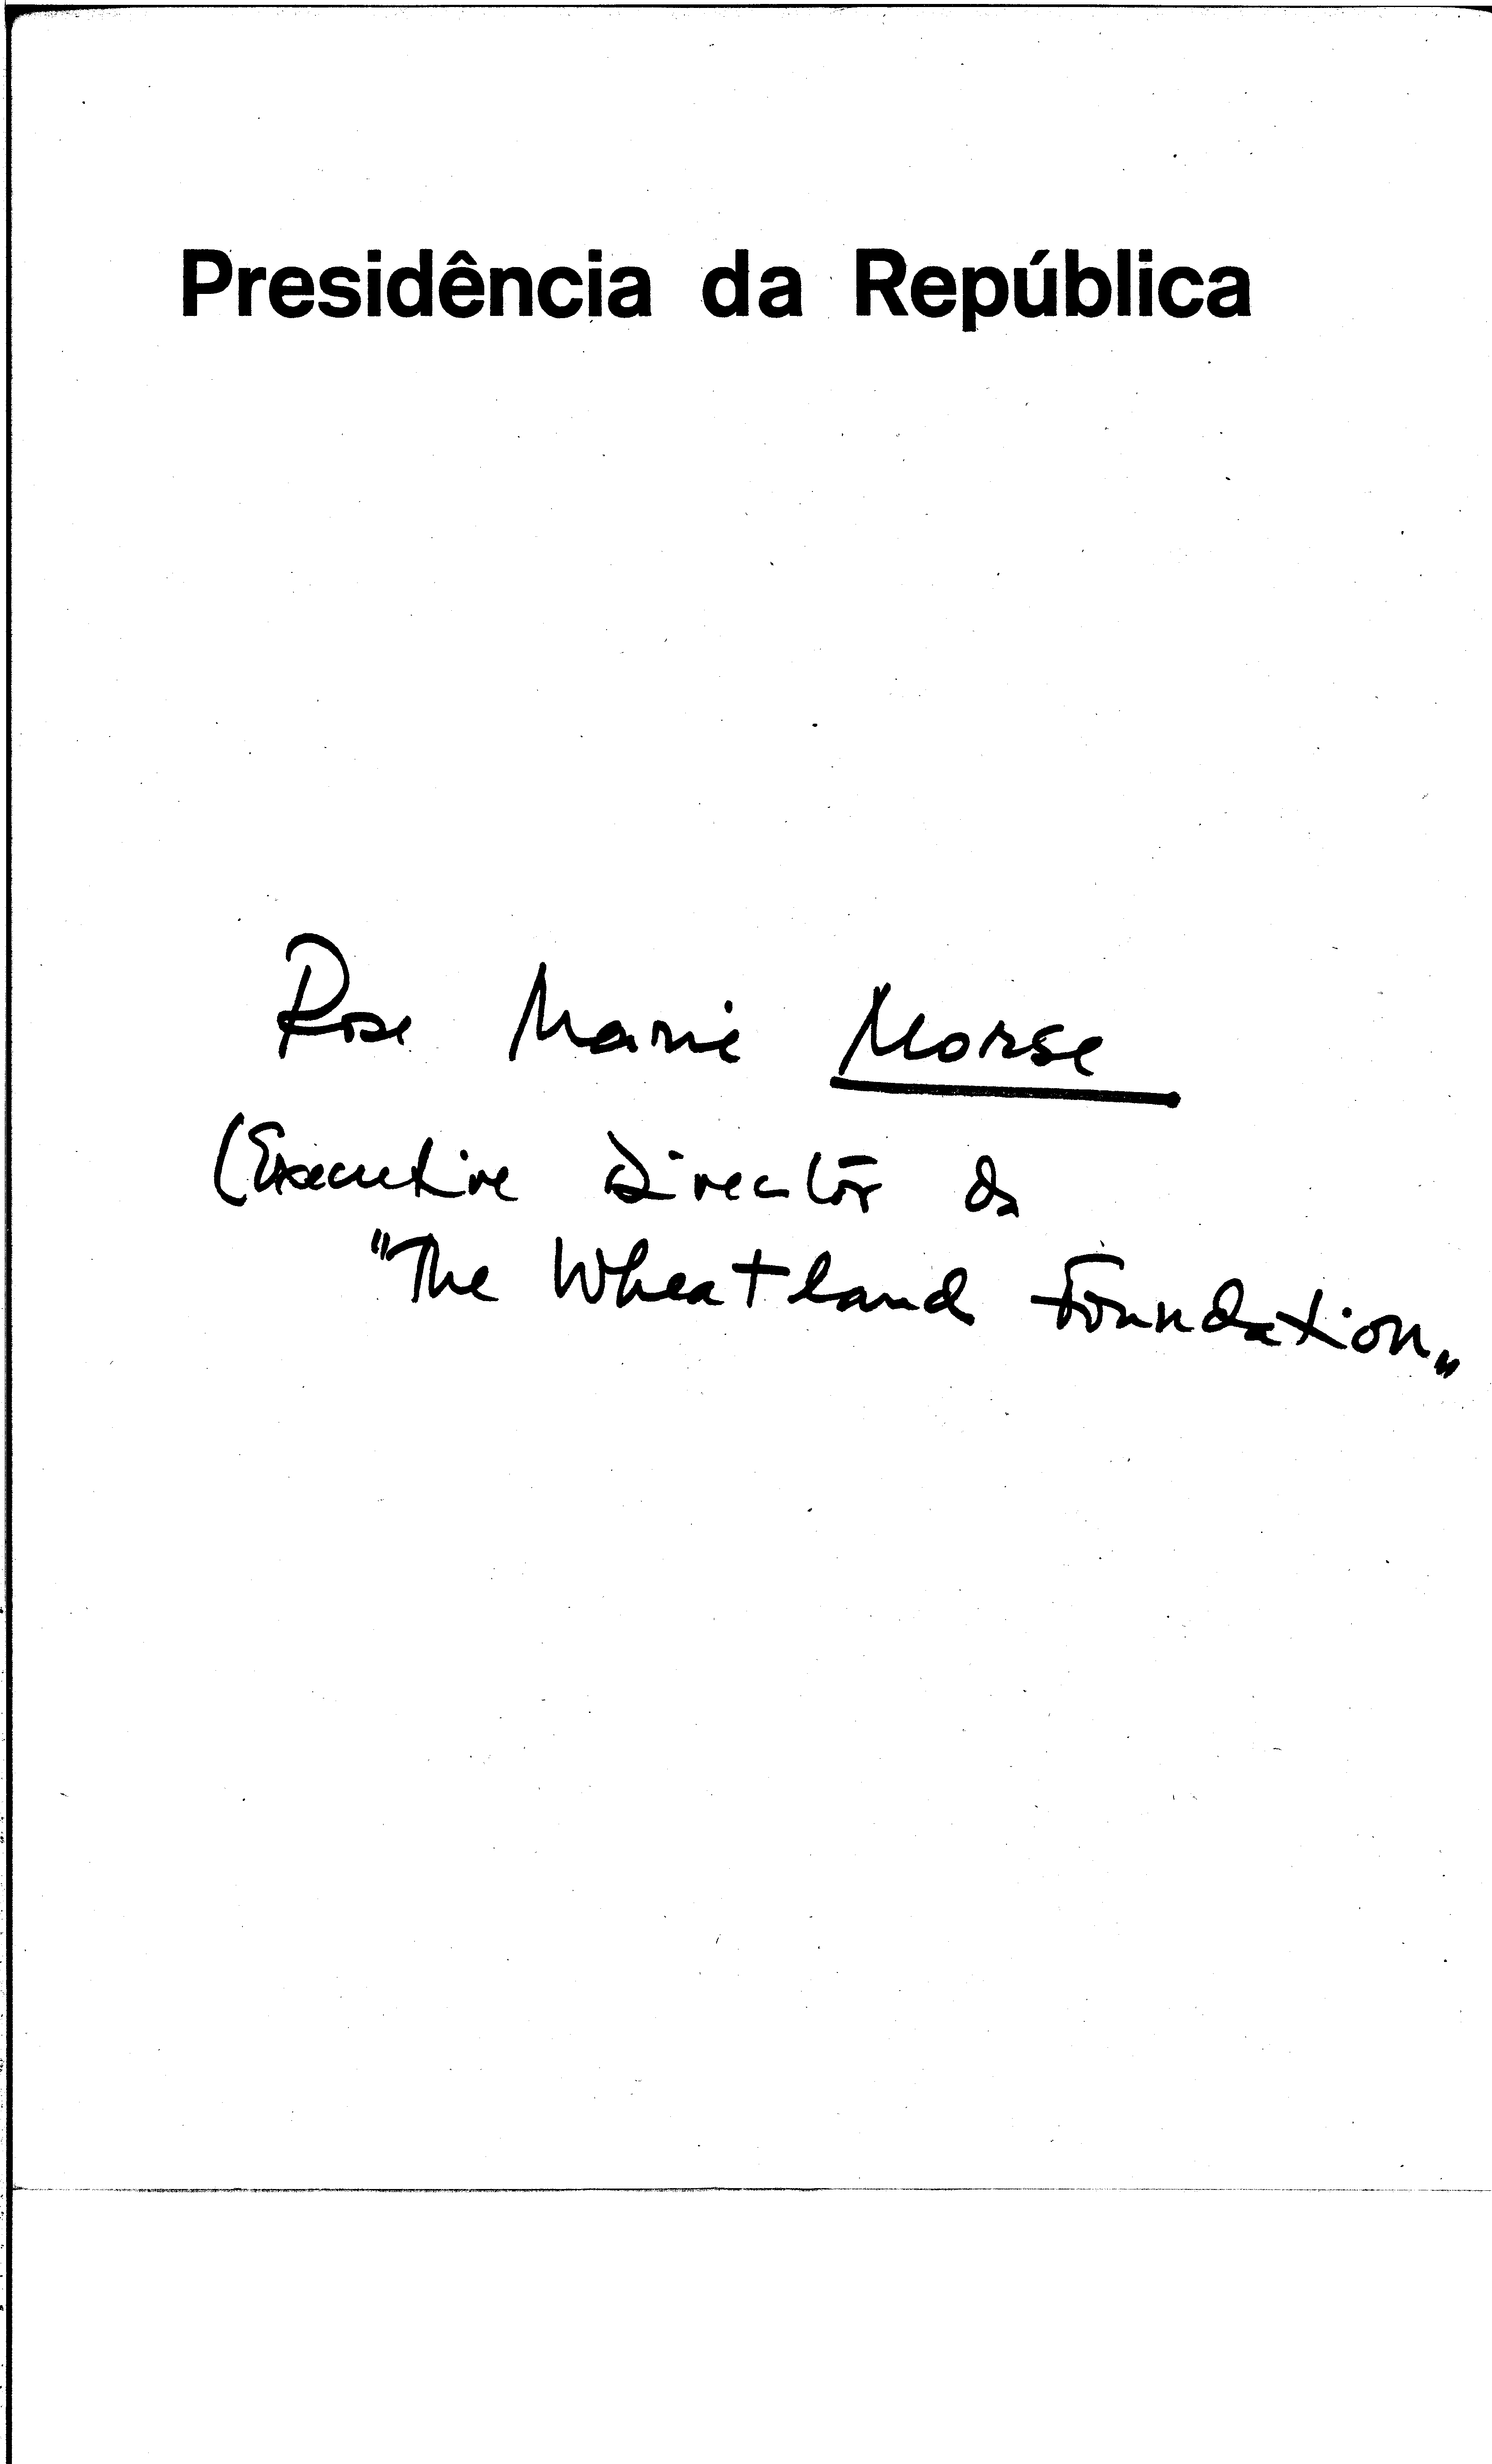 Presidência da República
Rose Marie Morse
(Executive Director da
"The Wheatland Foundation"